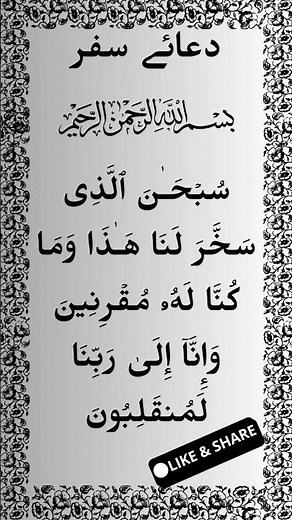 دعائے سفر
بسم الله الرحمن الرحيم
سُبْحَـٰنَ ٱلَّذِى
سَخَّرَ لَنَا هَـٰذَا وَمَا
كُنَّا لَهُۥ مُقْرِنِينَ
وَإِنَّآ إِلَىٰ رَبِّنَا
لَمُنقَلِبُونَ
LIKE & SHARE